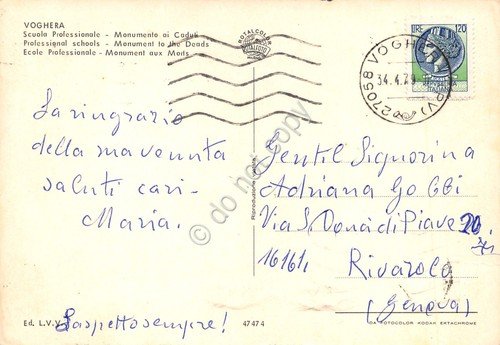 VOGHERA
Scuola Professionale - Monumento ai Caduti
Professional schools - Monument to the Deads
Ecole Professionale - Monument aux Morts
ROTALCOLOR
ROTALFOTO
LIRE 120
27058 VOGHERA (PV)
La ringrazio
della sua venuta
saluti cari
Maria.
L'aspetto sempre!
Gentil Signorina
Adriana Gobbi
Via S. Donà di Piave 20
16161 Rivarolo
(Genova)
Ed. L.V.V.
47474
DA FOTOCOLOR KODAK EKTACHROME
do not copy